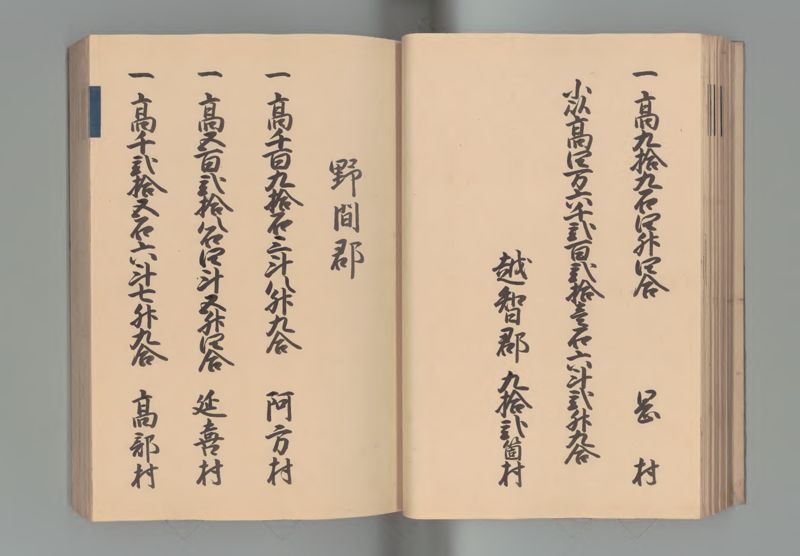 一高九拾九石四升四合 岡村
小以高四万六千弐百弐拾壱石六斗弐升九合
越智郡九拾弐箇村
野間郡
一高千百九拾石三斗八升九合 阿方村
一高五百弐拾八石四斗五升四合 延喜村
一高千弐拾五石六斗七升九合 高部村